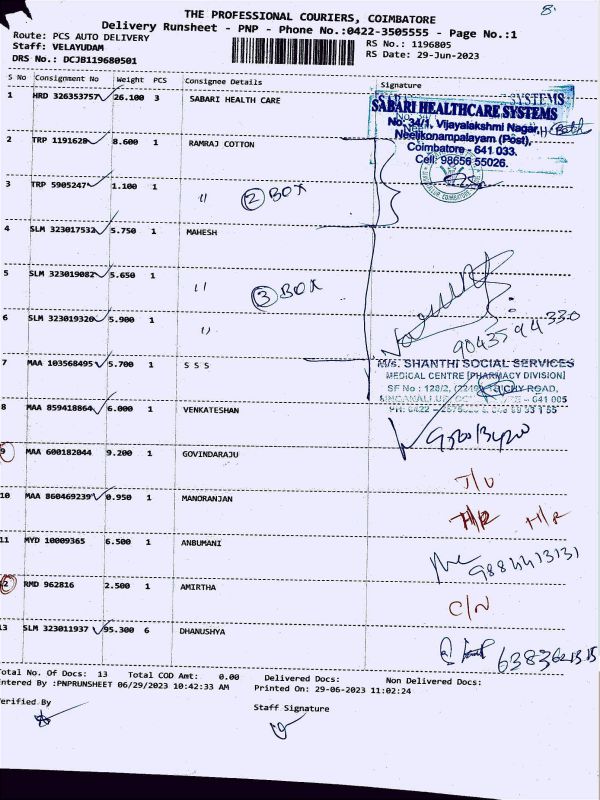 8.
THE PROFESSIONAL COURIERS, COIMBATORE
Delivery Runsheet - PNP - Phone No.:0422-3505555 - Page No.:1
Route: PCS AUTO DELIVERY
Staff: VELAYUDAM
RS No.: 1196805
DRS No.: DCJB119680501
RS Date: 29-Jun-2023
S No Consignment No Weight PCS Consignee Details Signature
1 HRD 326353757 26.100 3 SABARI HEALTH CARE
SABARI HEALTHCARE SYSTEMS
No: 34/1, Vijayalakshmi Nagar,
Neelikonampalayam (Post),
Coimbatore - 641 033.
Cell: 98656 55026.
2 TRP 1191628 8.600 1 RAMRAJ COTTON
3 TRP 5905247 1.100 1 " 2 BOX
4 SLM 323017532 5.750 1 MAHESH
5 SLM 323019082 5.650 1 " 3 BOX
6 SLM 323019320 5.900 1 "
9043594330
7 MAA 103568495 5.700 1 S S S
M/s. SHANTHI SOCIAL SERVICES
MEDICAL CENTRE [PHARMACY DIVISION]
SF No : 128/2, TRICHY ROAD,
641 005
8 MAA 859418864 6.000 1 VENKATESHAN
9 MAA 600182044 9.200 1 GOVINDARAJU
10 MAA 860469239 0.950 1 MANORANJAN H/R H/R
11 MYD 10009365 6.500 1 ANBUMANI 9884413131
12 RMD 962816 2.500 1 AMIRTHA C/N
13 SLM 323011937 95.300 6 DHANUSHYA
Total No. Of Docs: 13 Total COD Amt: 0.00 Delivered Docs: Non Delivered Docs:
Entered By :PNPRUNSHEET 06/29/2023 10:42:33 AM Printed On: 29-06-2023 11:02:24
Verified By
Staff Signature